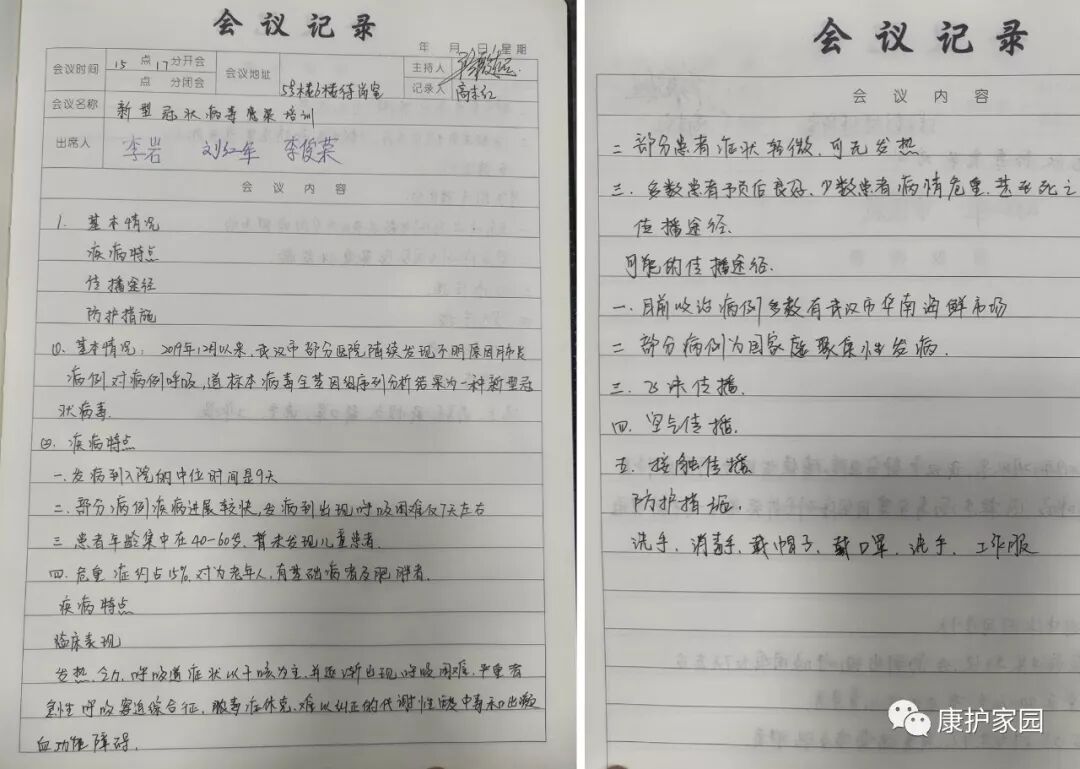 会议记录
年 月 日 星期
会议时间 15 点 17 分开会 会议地址 5号楼6楼待岗室 主持人
点 分闭会 记录人
会议名称 新型冠状病毒感染培训
出席人 李岩 刘红军 李俊荣
会议内容
1. 基本情况
疾病特点
传播途径
防护措施
①. 基本情况: 2019年12月以来,武汉市部分医院陆续发现不明原因肺炎
病例,对病例呼吸,道标本病毒全基因组序列分析结果为一种新型冠
状病毒.
疾病特点
一.发病到入院的中位时间是9天
二.部分病例疾病进展较快,发病到出现呼吸困难仅7天左右
三.患者年龄集中在40-60岁,暂未发现儿童患者.
四.危重症约占15%,对为老年人,有基础病者及肥胖者.
疾病特点
临床表现
发热,乏力,呼吸道症状以干咳为主,并逐渐出现呼吸困难,严重者
急性呼吸窘迫综合征,脓毒症休克,难以纠正的代谢性酸中毒和出凝
血功能障碍.
会议记录
会议内容
二 部分患者症状轻微,可无发热
三.多数患者予后良好,少数患者病情危重,甚至死亡
传播途径.
可能的传播途径.
一.目前收治病例多数有武汉市华南海鲜市场
二 部分病例为国家庭聚集性发病.
三.飞沫传播.
四.空气传播.
五.接触传播
防护措施.
洗手,消毒手,戴帽子,戴口罩,洗手,工作服
康护家园